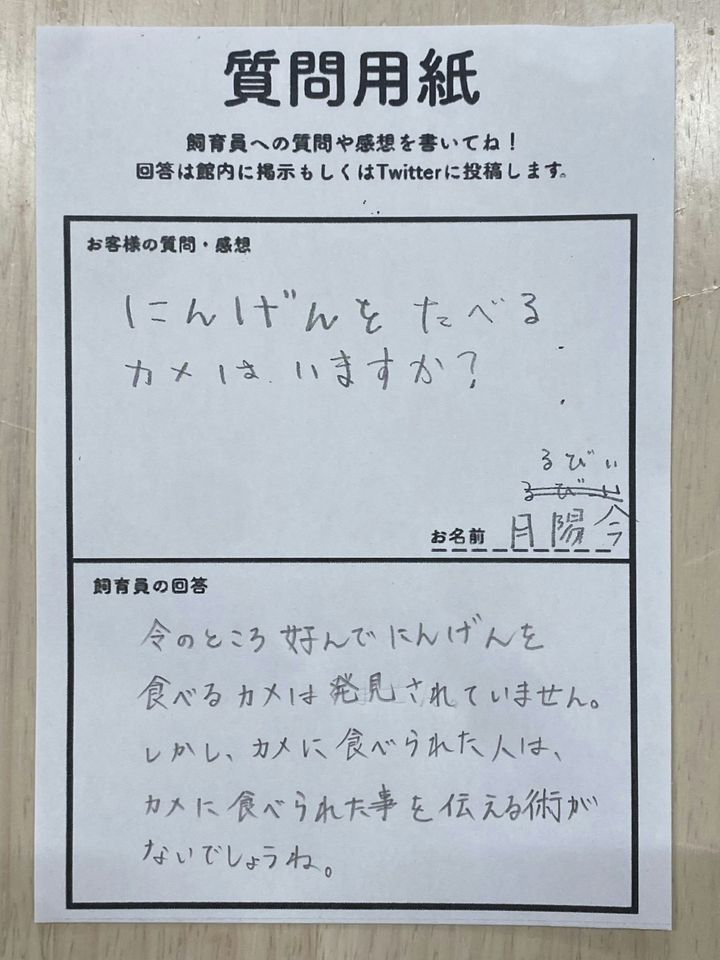 質問用紙
飼育員への質問や感想を書いてね！
回答は館内に掲示もしくはTwitterに投稿します。
お客様の質問・感想
にんげんを たべる
カメは いますか？
るびい
るびい
お名前 月陽令
飼育員の回答
今のところ 好んで にんげんを
食べる カメは 発見されていません。
しかし、カメに 食べられた人は、
カメに 食べられた事を伝える術が
ないでしょうね。